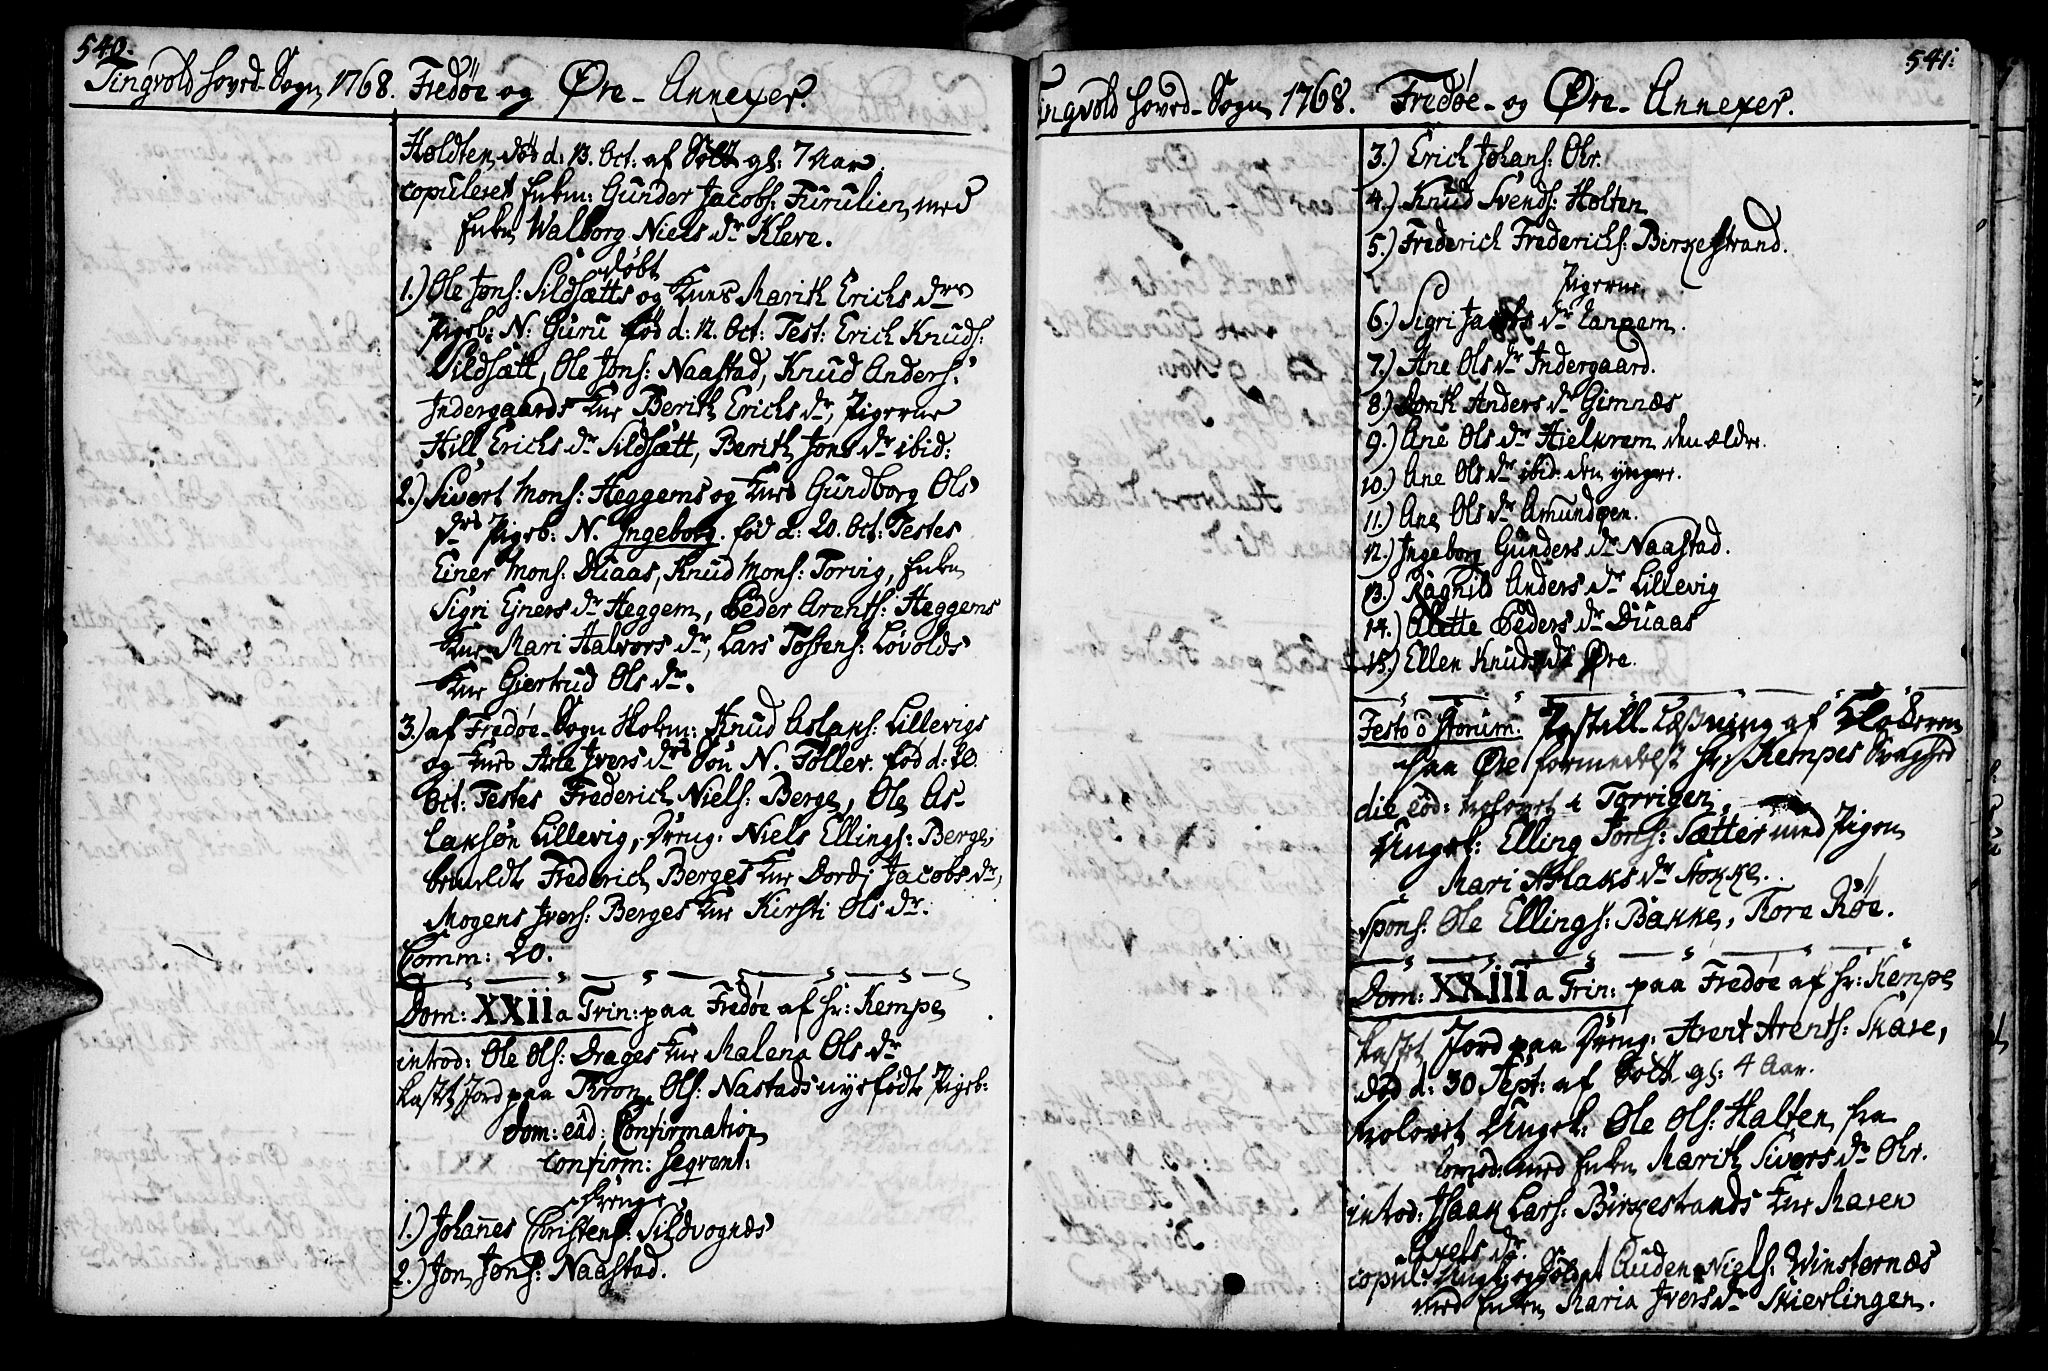 540.
Tingvold Hoved-Sogn 1768. Fredøe og Øre-Annexer.
Holdten, død d: 13. Oct: af Sott gl: 7 Aar.
copuleret Enkm: Gunder Jacobs: Furulien, med
Enken Walborg Niels dr Kleve.
døbt
1.) Ole Jons: Sildsætts og Knes Marith Erichs drs
Pigeb: N: Guru fød d: 12. Oct: Test: Erich Knuds:
Sildsætt, Ole Jons: Naastad, Knud Anders:
Indergaards Kne Berith Erichs dr, Pigerne
Hill Erichs dr Sildsætt, Berith Jons dr ibid:
2.) Sivert Mons: Heggems og Knes Gundborg Ols
drs Pigeb: N. Ingeborg. fød d: 20. Oct: Testes
Einer Mons: Duaas, Knud Mons: Toring, Enken
Sigri Ejners dr Heggem, Peder Arents: Heggems
Kne Mari Halvors dr, Lars Tostens: Løvolds
Kne Giertrud Ols dr.
3.) af Fredøe-Sogn Skolem: Knud Aslaks: Lillevigs
og Knes Asle Ivers drs Søn N. Toller. fød d: 20.
Oct: Testes Frederich Niels: Berge, Ole As-
laksøn Lillevig, Dreng: Niels Ellings: Berge,
bemeldte Frederich Berges Kne Dordi Jacobs dr,
Mogens Ivers: Berges Kne Kirsti Ols dr.
Comm: 20.
Dom: XXII a Trin: paa Fredøe af Hr: Kempe
introd: Ole Ols: Drages Kne Malena Ols dr
kastet Jord paa Tron Ols: Nastads nyefødte Pigeb:
Dom: eâd: Confirmation
confirm: seqvent:
Drenge
1.) Johannes Christens: Sildvognæs
2.) Jon Jons: Naastad.
541:
Tingvold Hoved-Sogn 1768. Fredøe- og Øre-Annexer.
3.) Erich Johans: Ohr.
4.) Knud Svends: Holten
5.) Frederich Frederichs: Birkestrand.
Pigerne
6.) Sigri Jacobs dr Langem.
7.) Ane Ols dr Indergaard.
8.) Dorith Anders dr Gimnæs
9.) Ane Ols dr Hielkrem den ældre.
10.) Ane Ols dr ibid: den yngre.
11.) Ane Ols dr Amundgen.
12.) Ingeborg Gunders dr Naastad.
13.) Ragnild Anders dr Lillevig
14.) Olette Peders dr Duaas
15.) Ellen Knuds dr Øre.
Festo ō stōrum: Postill-Læsning af Klokkeren
paa Øre formedelst Hr: Kempes Svaghed
die eod: trolovet i Torvigen,
Ungk: Elling Jons: Sætter med Pigen
Mari Aslaks dr Stokke.
Spons: Ole Ellings: Bakke, Tore Røe.
Dom: XXIII a Trin: paa Fredøe af Hr: Kempe
kastet Jord paa Dreng: Arent Arents: Skare,
død d: 30 Sept: af Sott gl: 4 Aar.
trolovet Ungk: Ole Ols: Halten fra
med Enken Marith Sivers dr Ohr.
introd: Isaak Lars: Birkestrands Kne Maren
Axels dr.
copul: Ungk: og Soldat Auden Niels: Winsternæs
med Enken Maria Ivers dr Skierlingen.